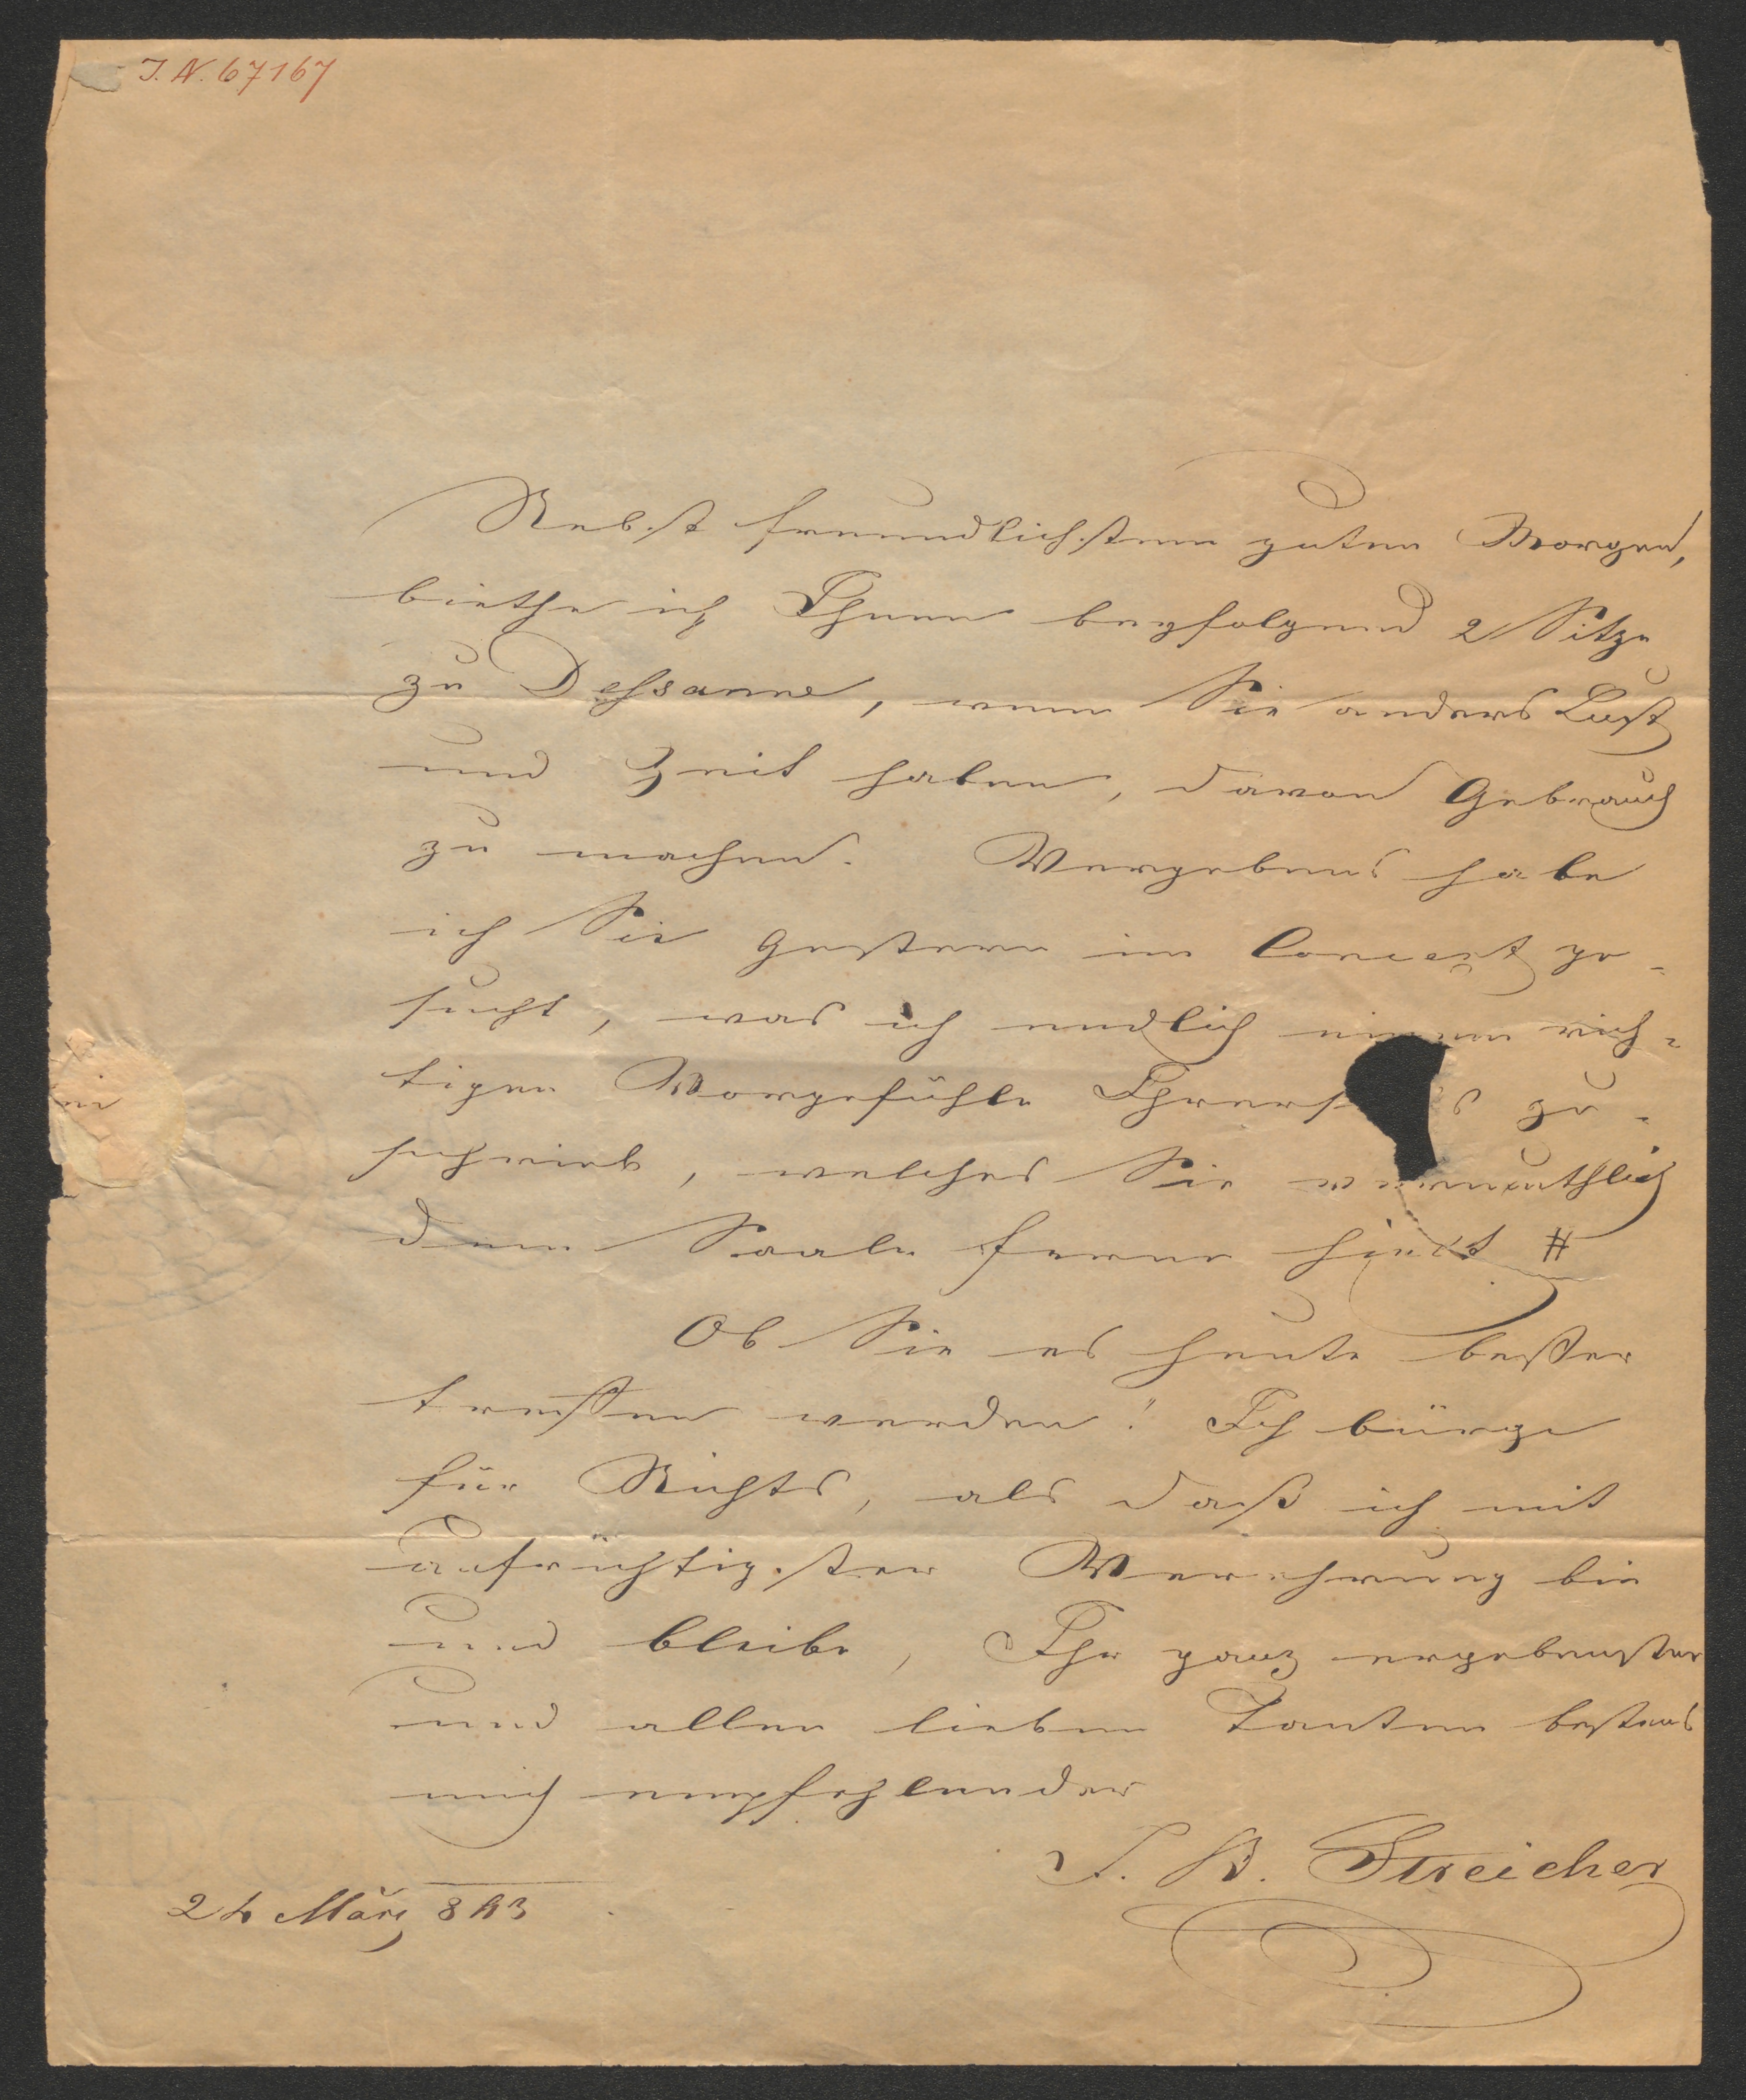 I. N. 67167
Nebst freundlichstem guten Morgen,
biethe ich Ihnen beyfolgend 2 Sitze
zu Dessanne, wenn Sie anders Lust
und Zeit haben, davon Gebrauch
zu machen. Vergebens habe
ich Sie gestern im Concert ge-
sucht, was ich endlich einem rich-
tigen Vorgefühle zu-
schrieb, welches Sie vermuthlich
dem Saale ferne hielt #
Ob Sie es heute besser
treffen werden! Ich bürge
für Nichts, als daß ich mit
aufrichtigster Verehrung bin
und bleibe, Ihr ganz ergebenster
und allen lieben Tanten bestens
mich empfehlender
J. B. Streicher
24 März 843